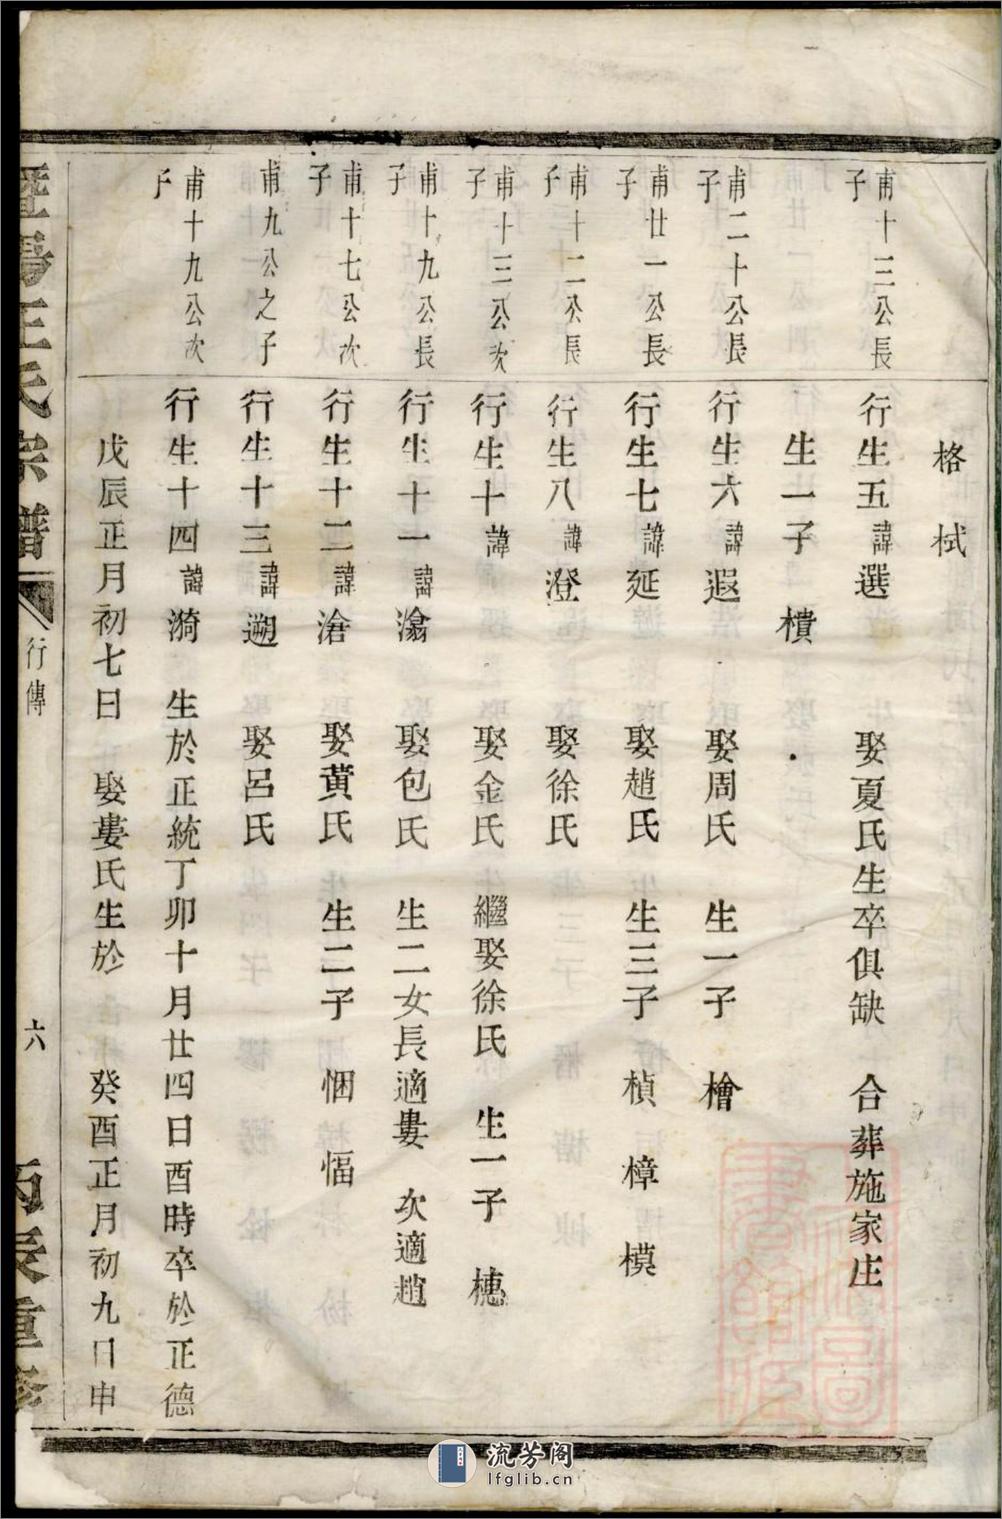 格 栻
甫十三公長子
行生五 諱選 娶夏氏生卒俱缺 合葬施家庄
生一子 樻
甫二十公長子
行生六 諱遐 娶周氏 生一子 檜
甫廿一公長子
行生七 諱延 娶趙氏 生三子 楨 樟 模
甫十二公長子
行生八 諱澄 娶徐氏
甫十三公次子
行生十 諱 娶金氏 繼娶徐氏 生一子 橞
甫十九公長子
行生十一 諱瀚 娶包氏 生二女長適婁 次適趙
甫十七公次子
行生十二 諱滄 娶黄氏 生二子 悃 愊
甫九公之子
行生十三 諱遡 娶呂氏
甫十九公次子
行生十四 諱漪 生於正統丁卯十月廿四日酉時卒於正德
戊辰正月初七日 娶婁氏生於 癸酉正月初九日申
暨陽王氏宗譜 行傳 六 丙辰重修
流芳阁
lfglib.cn